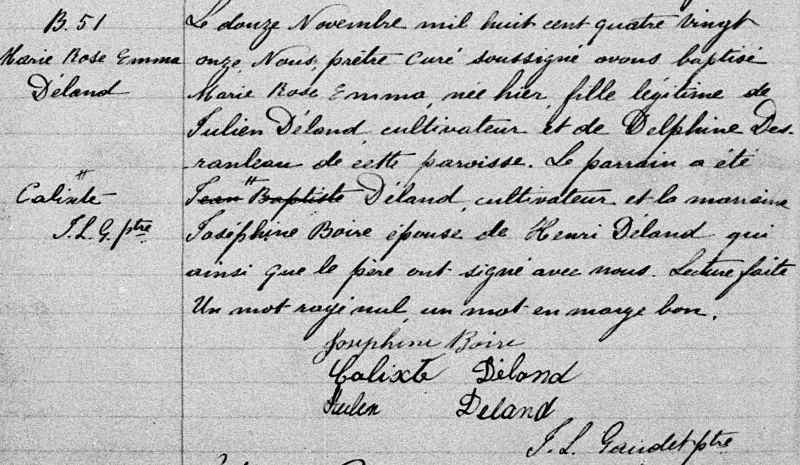 B. 51
Marie Rose Emma
Déland
Le douze Novembre mil huit cent quatre vingt
onze Nous, prêtre curé soussigné avons baptisé
Marie Rose Emma, née hier, fille légitime de
Julien Déland, cultivateur et de Delphine Des-
ranleau de cette paroisse. Le parrain a été
# Jean Baptiste Déland, cultivateur et la marraine
#
Calixte
J. L. G. ptre
Joséphine Boire épouse de Henri Déland qui
ainsi que le père ont signé avec nous. Lecture faite
Un mot rayé nul, un mot en marge bon.
Josephine Boire
Calixte Déland
Julien Deland
J. L. Gaudet ptre